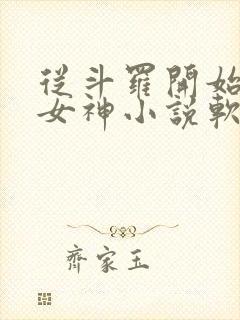 從斗羅開始
女神小說軟
齊家玉